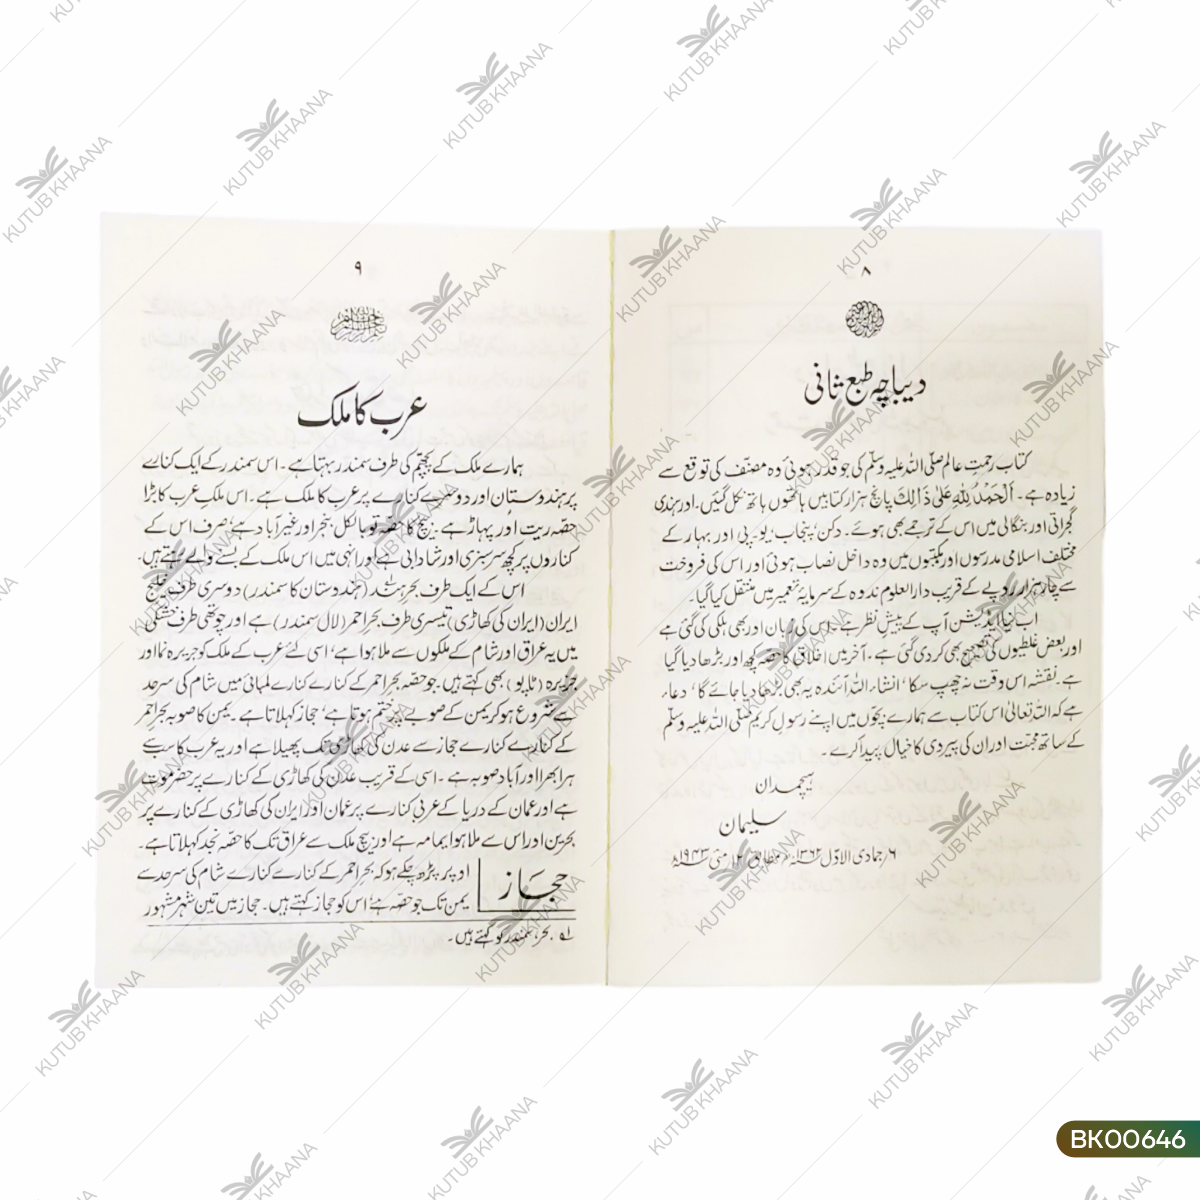 ۸
دیباچہ طبع ثانی
کتاب رحمتِ عالم صلّی اللہ علیہ وسلّم کی جو قدر ہوئی وہ مصنّف کی توقع سے
زیادہ ہے۔ اَلْحَمْدُ لِلّٰہِ عَلیٰ ذَالِکَ پانچ ہزار کتابیں ہاتھوں ہاتھ نکل گئیں۔ اور ہندی
گجراتی اور بنگالی میں اس کے ترجمے بھی ہوئے۔ دکن، پنجاب، یو۔پی اور بہار کے
مختلف اسلامی مدرسوں اور مکتبوں میں وہ داخل نصاب ہوئی اور اس کی فروخت
سے چار ہزار روپے کے قریب دارالعلوم ندوہ کے سرمایۂ تعمیر میں منتقل کیا گیا۔
اب نیا ایڈیشن آپ کے پیشِ نظر ہے۔ اس کی زبان اور بھی ہلکی کی گئی ہے
اور بعض غلطیوں کی تصحیح بھی کر دی گئی ہے۔ آخر میں اخلاق کا حصّہ کچھ اور بڑھا دیا گیا
ہے۔ نقشہ اس وقت نہ چھپ سکا، انشاء اللہ آئندہ یہ بھی بڑھا دیا جائے گا، دعاء
ہے کہ اللہ تعالیٰ اس کتاب سے ہمارے بچّوں میں اپنے رسول کریم صلّی اللہ علیہ وسلّم
کے ساتھ محبّت اور ان کی پیروی کا خیال پیدا کرے۔
ہیچمدان
سلیمان
۶؍ جمادی الاوّل ۱۳۶۲ھ مطابق ۱۲؍ مئی ۱۹۴۳ء
۹
عرب کا ملک
ہمارے ملک کے پچھّم کی طرف سمندر بہتا ہے۔ اس سمندر کے ایک کنارے
پر ہندوستان اور دوسرے کنارے پر عرب کا ملک ہے۔ اس ملکِ عرب کا بڑا
حصّہ ریت اور پہاڑ ہے۔ بیچ کا حصّہ تو بالکل بنجر اور غیر آباد ہے، صرف اس کے
کناروں پر کچھ سرسبزی اور شادابی ہے اور انہی میں اس ملک کے بسنے والے رہتے ہیں۔
اس کے ایک طرف بحرِ ہند (ہندوستان کا سمندر) دوسری طرف خلیج
ایران (ایران کی کھاڑی) تیسری طرف بحرِ احمر (لال سمندر) ہے اور چوتھی طرف خشکی
میں یہ عراق اور شام کے ملکوں سے ملا ہوا ہے، اسی لئے عرب کے ملک کو جزیرہ نما اور
جزیرہ (ٹاپو) بھی کہتے ہیں۔ جو حصّہ بحرِ احمر کے کنارے کنارے لمبائی میں شام کی سرحد
سے شروع ہو کر یمن کے صوبے پر ختم ہوتا ہے، حجاز کہلاتا ہے۔ یمن کا صوبہ بحرِ احمر
کے کنارے کنارے حجاز سے عدن کی کھاڑی تک پھیلا ہے اور یہ عرب کا سب سے
ہرا بھرا اور آباد صوبہ ہے۔ اسی کے قریب عدن کی کھاڑی کے کنارے پر حضرموت
ہے اور عمان کے دریا کے عربی کنارے پر عمان اور ایران کی کھاڑی کے کنارے پر
بحرین اور اس سے ملا ہوا یمامہ ہے اور بیچ ملک سے عراق تک کا حصّہ نجد کہلاتا ہے۔
حجاز اوپر پڑھ چکے ہو کہ بحرِ احمر کے کنارے کنارے شام کی سرحد سے
یمن تک جو حصّہ ہے، اس کو حجاز کہتے ہیں۔ حجاز میں تین شہر مشہور
لہ بحر، سمندر کو کہتے ہیں۔
KUTUB KHAANA
BK00646